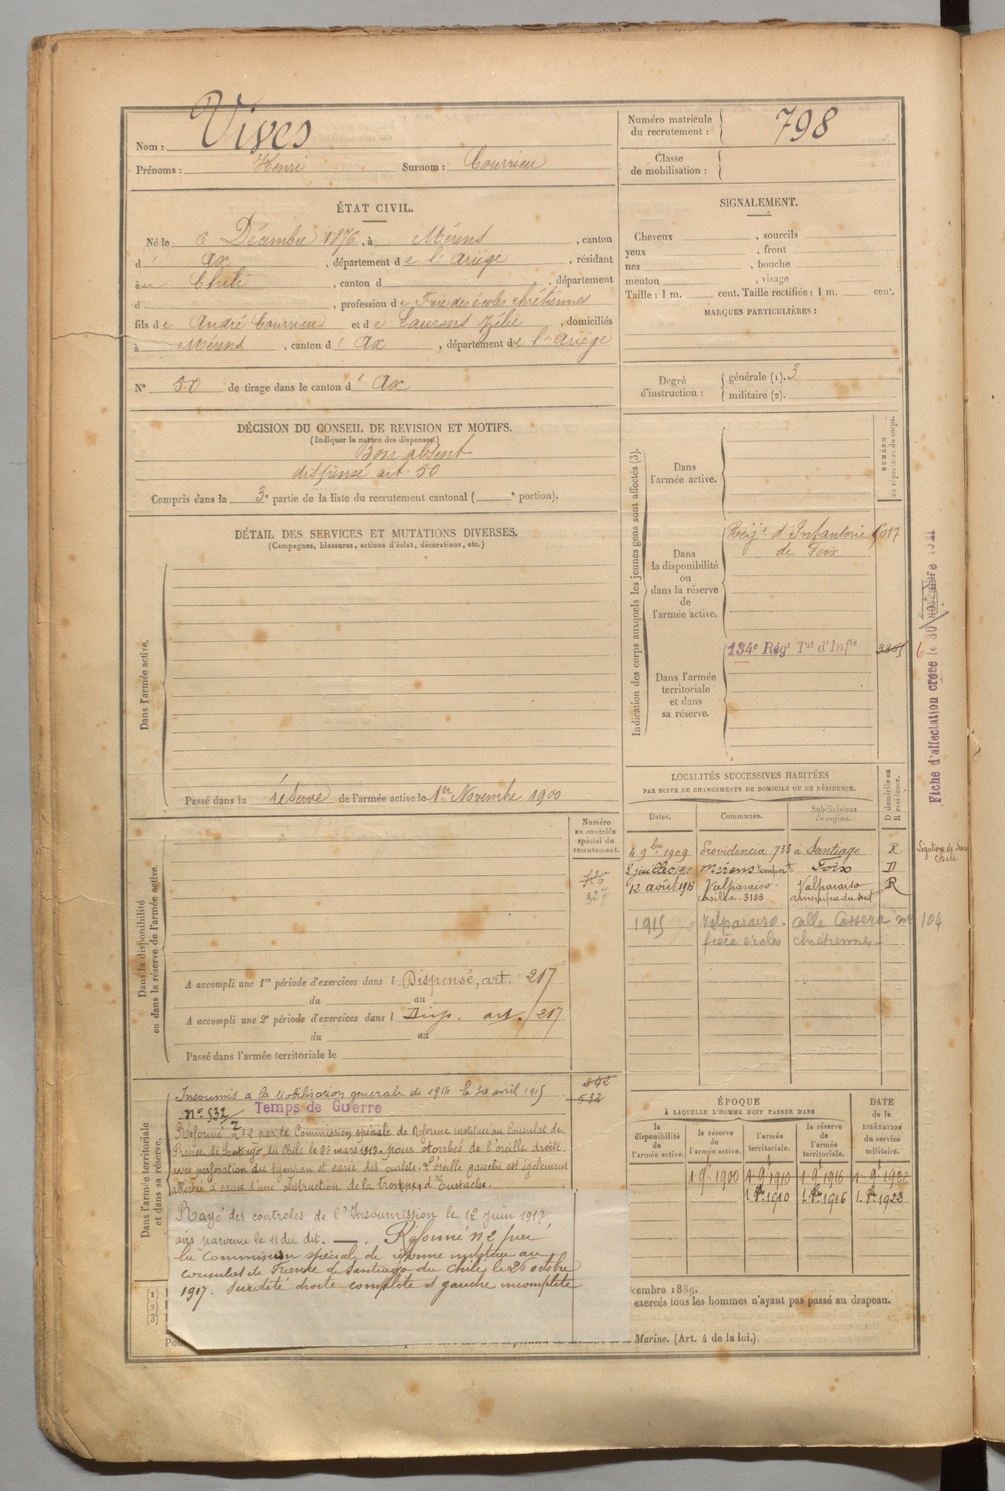 Nom : Vives
Prénoms : Henri Surnom : Courrieu
Numéro matricule du recrutement : 798
Classe de mobilisation :
ÉTAT CIVIL.
Né le 6 Décembre 1876, à Mérens, canton
d' Ax, département de l'Ariège, résidant
au Chili, canton d , département
d , profession de Frère des écoles chrétiennes
fils de André Courrieu et de Laurens Zélie, domiciliés
à Mérens, canton d' Ax, département de l'Ariège
N° 50 de tirage dans le canton d' Ax
SIGNALEMENT.
Cheveux , sourcils
yeux , front
nez , bouche
menton , visage
Taille : 1 m. cent. Taille rectifiée : 1 m. cent.
MARQUES PARTICULIÈRES :
Degré d'instruction :
générale (1). 3
militaire (2).
DÉCISION DU CONSEIL DE REVISION ET MOTIFS.
(Indiquer la nature des dispenses.)
Bon absent
dispensé art. 50
Compris dans la 3e partie de la liste du recrutement cantonal ( e portion).
DÉTAIL DES SERVICES ET MUTATIONS DIVERSES.
(Campagnes, blessures, actions d'éclat, décorations, etc.)
Dans l'armée active.
Passé dans la réserve de l'armée active le 1er Novembre 1900
Indication des corps auxquels les jeunes gens sont affectés (3).
NUMÉRO
au répertoire du corps.
Dans l'armée active.
Dans la disponibilité ou dans la réserve de l'armée active.
Régt d'Infanterie
de Foix
Dans l'armée territoriale et dans sa réserve.
134e Régt Tal d'Infie
6
Fiche d'affectation créée le 30
LOCALITÉS SUCCESSIVES HABITÉES
PAR SUITE DE CHANGEMENTS DE DOMICILE OU DE RÉSIDENCE.
Dates. Communes. Subdivisions de région. D domicile ou R résidence.
4 9bre 1909 Providencia 733 à Santiago R.
Mérens Foix D
12 août 1911 Valparaiso Valparaiso R
casilla. 3133 amérique du sud
1915 Valparaiso. calle no 104
frère écoles chrétiennes
Chili
Dans la disponibilité ou dans la réserve de l'armée active.
Numéro au contrôle spécial du recrutement.
327
A accompli une 1re période d'exercices dans l Dispensé, art. 217
du au
A accompli une 2e période d'exercices dans l Disp. art. 217
du au
Passé dans l'armée territoriale le
Dans l'armée territoriale et dans sa réserve.
Insoumis à la mobilisation générale de 1914 le 30 avril 1915
N° 532 Temps de Guerre
532
Réformé n° 2 par la Commission spéciale de Réforme instituée au Consulat de
France de Santiago du Chili le 27 mars 1917. pour otorrhée de l'oreille droite
avec perforation du tympan et carie des osselets. L'oreille gauche est également
affectée à cause d'une obstruction de la trompe d'Eustache.
Rayé des controles de l'Insoumission le 12 Juin 1917
avis parvenu le 11 du dit. — . Réformé n° 2 par
la Commission spéciale de réforme instituée au
consulat de France de Santiago du Chili le 20 octobre
1917. Surdité droite complète et gauche incomplète
ÉPOQUE
À LAQUELLE L'HOMME DOIT PASSER DANS
la disponibilité de l'armée active. la réserve de l'armée active. l'armée territoriale. la réserve de l'armée territoriale.
DATE de la LIBÉRATION du service militaire.
1 9e 1900 1 9e 1910 1 9e 1916 1 9e 1922
1. 8bre 1910 1. 8bre 1916 1. 8bre 1922
(1)
(2)
(3)
cembre 1889.
exercés tous les hommes n'ayant pas passé au drapeau.
Marine. (Art. 4 de la loi.)